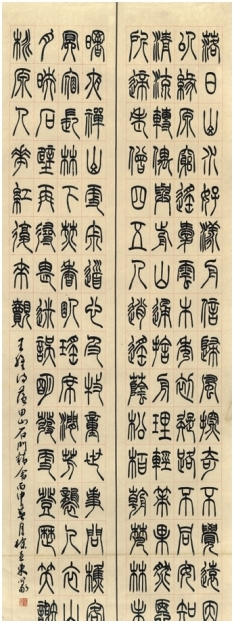 落日山水好漾舟信歸風探奇不覺遠因
以緣原窮遙愛雲木秀初疑路不同安知
清流轉偶與前山通捨舟理輕策果然愜
所適老僧四五人逍遙蔭松柏朝梵林未
曙夜禪山更寂道心及牧童世事問樵客
暝宿長林下焚香臥瑤席澗芳襲人衣山
月映石壁再尋畏迷誤明發更登歷笑謝
桃原人花紅復來覿
王維詩藍田山石門精舍丙申月